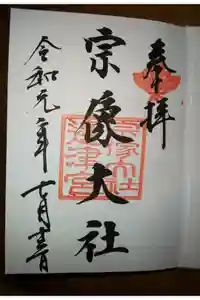 奉拝
宗像大社
令和元年十一月
宗像大社
辺津宮